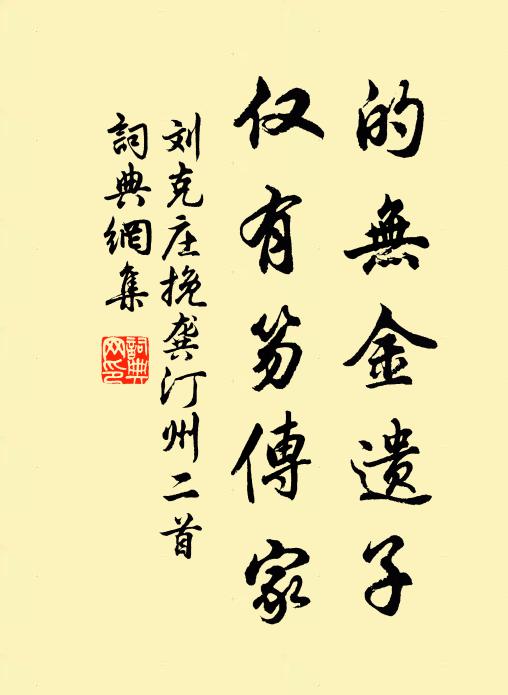 的無金遺子
仅有笏傳家
刘克庄挽龚汀州二首
詞典網集
詞典網印